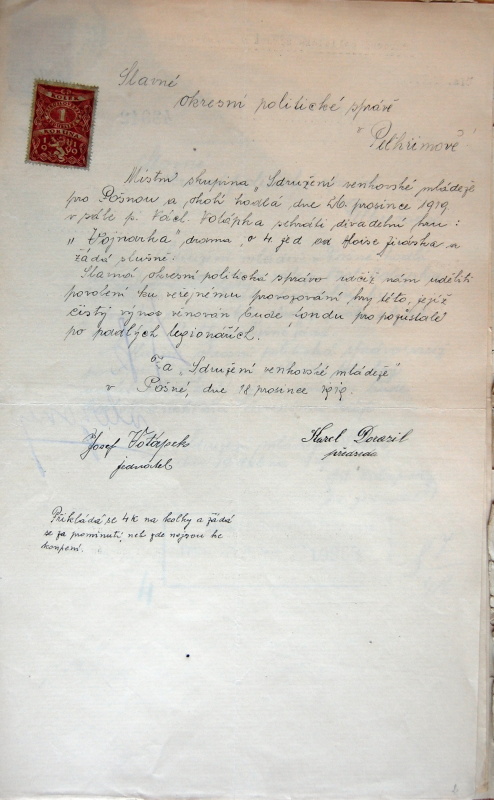 KOLEK
1
KORUNA
Slavné
okresní politické správě
v Pelhřimově
Místní skupina „Sdružení venkovské mládeže
pro Pošnou a okolí hodlá dne 26. prosince 1919
v sále p. Václ. Voťápka sehráti divadelní hru:
„Vojnarka" drama o 4 jed od Aloise Jiráska a
žádá slušně:
Slavná okresní politická správo račiž nám uděliti
povolení ku veřejnému provozování hry této, jejíž
čistý výnos věnován bude fondu pro pozůstalé
po padlých legionářích.
Za „Sdružení venkovské mládeže"
v Pošné, dne 18 prosince 1919.
Josef Voťápek
jednatel
Karel Dorazil
předseda
Přikládá se 4 K na kolky a žádá
se za prominutí, neť zde nejsou ke
koupení.